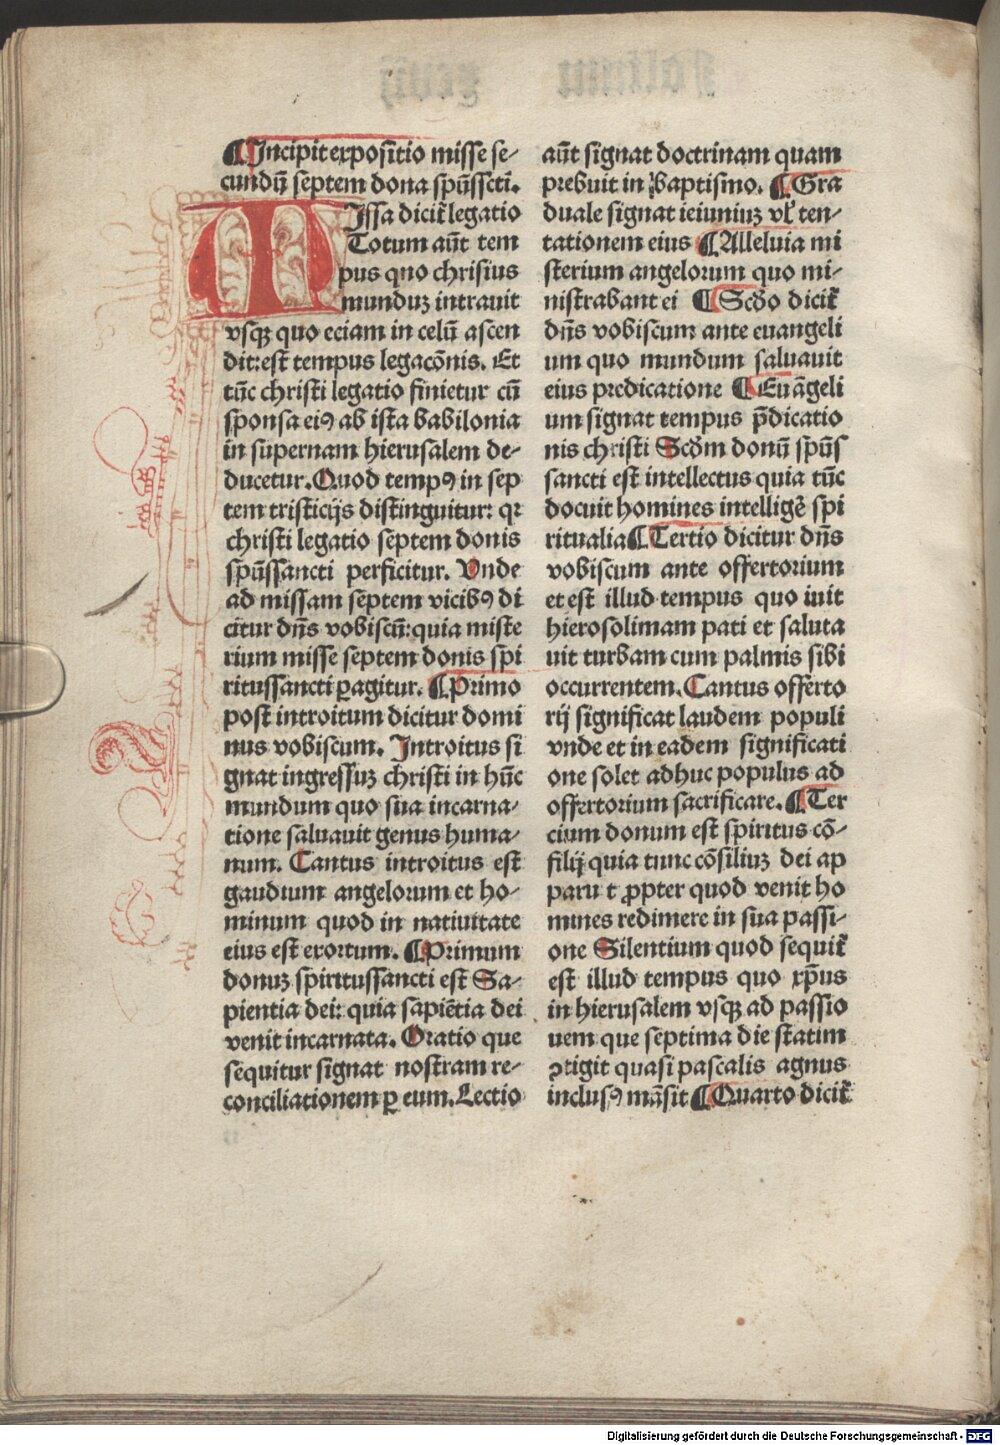 ¶ Incipit expositio misse se-
cundū septem dona spūssctī.
MIssa dicit̄ legatio
Totum aūt tem
pus quo chrisius
munduꝫ intrauit
vsqꝫ quo eciam in celū ascen
dit: est tempus legacōnis. Et
tūc christi legatio finietur cū
sponsa eiꝰ ab ista babilonia
in supernam hierusalem de-
ducetur. Quod tempꝰ in sep
tem tristicijs distinguitur: qꝛ
christi legatio septem donis
spūssancti perficitur. Vnde
ad missam septem vicibꝰ di
citur dn̄s vobiscū: quia miste
rium misse septem donis spi
ritussancti ꝑagitur. ¶ Primo
post introitum dicitur domi
nus vobiscum. Introitus si
gnat ingressuꝫ christi in hūc
mundum quo sua incarna-
tione saluauit genus huma-
num. Cantus introitus est
gaudium angelorum et ho-
minum quod in natiuitate
eius est exortum. ¶ Primum
donuꝫ spiritussancti est Sa-
pientia dei: quia sapiētia dei
venit incarnata. Oratio que
sequitur signat nostram re-
conciliationem ꝑ eum. Lectio
aūt signat doctrinam quam
prebuit in baptismo. ¶ Gra
duale signat ieiuniuꝫ vl̄ ten-
tationem eius ¶ Alleluia mi
sterium angelorum quo mi-
nistrabant ei ¶ Scd̄o dicit̄
dn̄s vobiscum ante euangeli
um quo mundum saluauit
eius predicatione ¶ Euāgeli
um signat tempus p̄dicatio
nis christi Scd̄m donū spūs
sancti est intellectus quia tūc
docuit homines intelligē spi
ritualia ¶ Tertio dicitur dn̄s
vobiscum ante offertorium
et est illud tempus quo iuit
hierosolimam pati et saluta
uit turbam cum palmis sibi
occurrentem. Cantus offerto
rij significat laudem populi
vnde et in eadem significati
one solet adhuc populus ad
offertorium sacrificare. ¶ Ter
cium donum est spiritus cō-
filij quia tunc cōsiliuꝫ dei ap
paru t ꝓpter quod venit ho
mines redimere in sua passi-
one Silentium quod sequit̄
est illud tempus quo xp̄us
in hierusalem vsqꝫ ad passio
nem que septima die statim
ꝯtigit quasi pascalis agnus
inclusꝰ māsit ¶ Quarto dicit̄
Digitalisierung gefördert durch die Deutsche Forschungsgemeinschaft - DFG